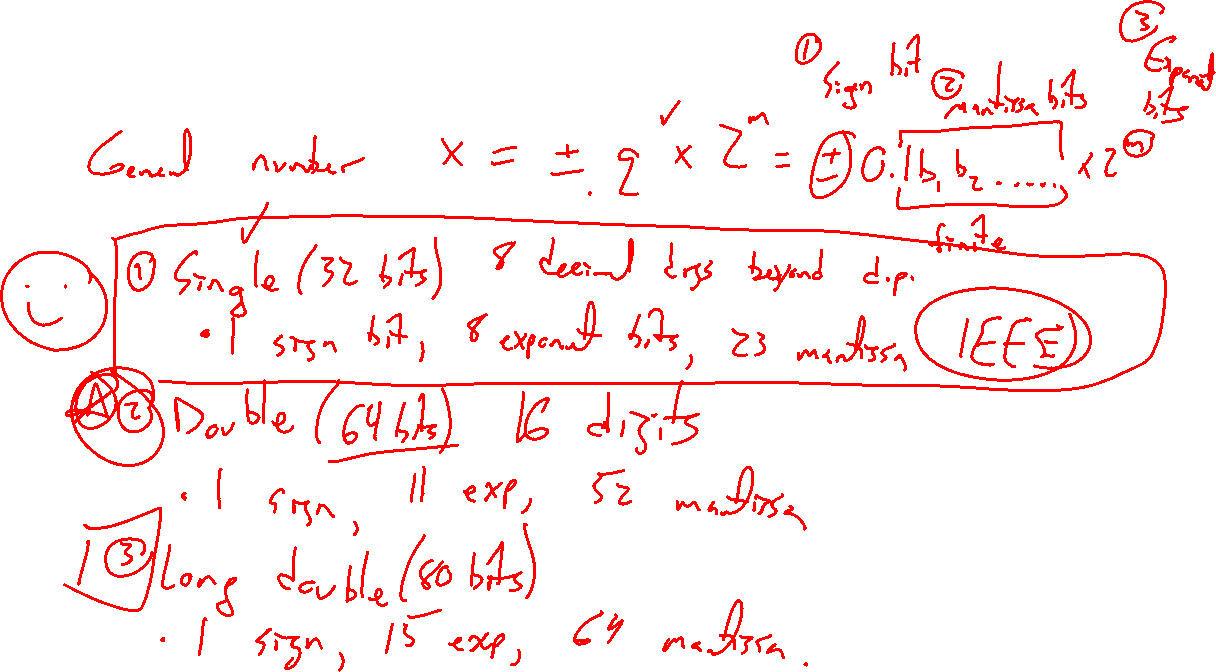 ① sign bit ② mantissa bits ③ Exponent bits
General number x = ± q × 2^m = ± 0.1b₁b₂...... × 2^m
finite
① Single (32 bits) 8 decimal digs beyond d.p.
· 1 sign bit, 8 exponent bits, 23 mantissa IEEE
② Double (64 bits) 16 digits
· 1 sign, 11 exp, 52 mantissa
③ Long double (80 bits)
· 1 sign, 15 exp, 64 mantissa.